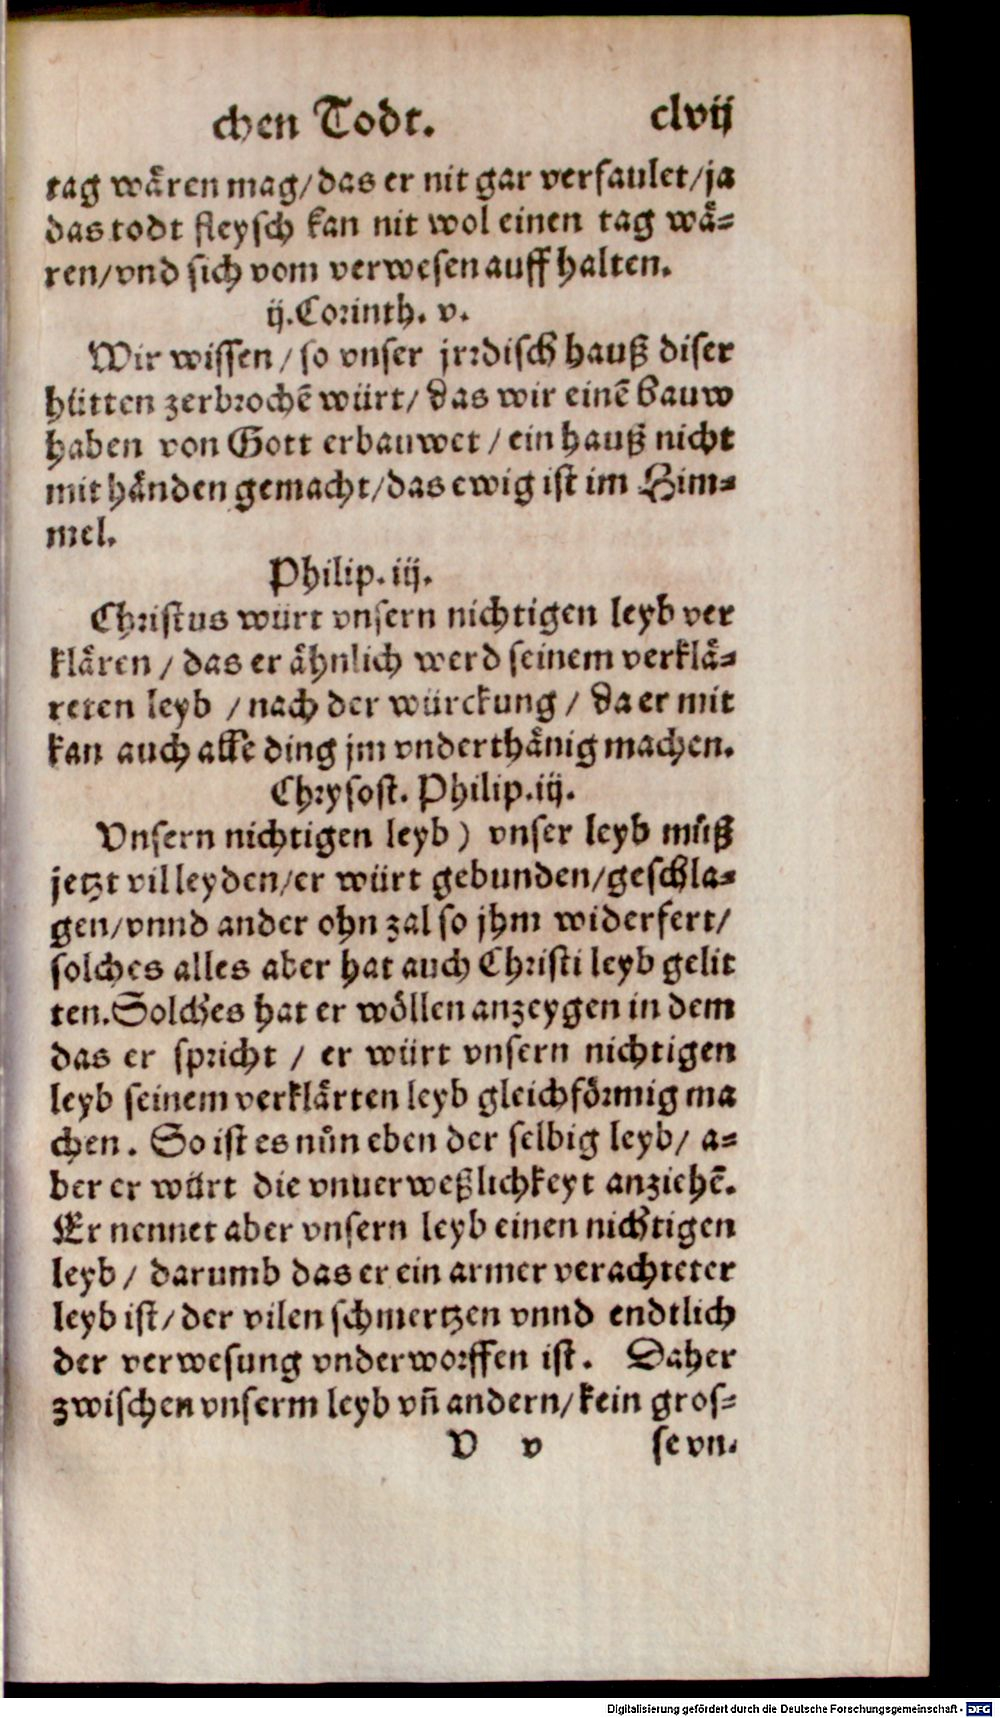 chen Todt. clvij
tag wären mag/das er nit gar verfaulet/ja
das todt fleysch kan nit wol einen tag wä-
ren/vnd sich vom verwesen auff halten.
ij.Corinth. v.
Wir wissen/so vnser jrrdisch hauß diser
hütten zerbrochē würt/das wir einē bauw
haben von Gott erbauwet/ein hauß nicht
mit händen gemacht/das ewig ist im Him-
mel.
Philip.iij.
Christus würt vnsern nichtigen leyb ver
klären/das er ähnlich werd seinem verklä-
reten leyb/nach der würckung/da er mit
kan auch alle ding jm vnderthänig machen.
Chrysost. Philip.iij.
Vnsern nichtigen leyb) vnser leyb můß
jetzt vil leyden/er würt gebunden/geschla-
gen/vnnd ander ohn zal so jhm widerfert/
solches alles aber hat auch Christi leyb gelit
ten.Solches hat er wöllen anzeygen in dem
das er spricht/er würt vnsern nichtigen
leyb seinem verklärten leyb gleichförmig ma
chen. So ist es nůn eben der selbig leyb/a-
ber er würt die vnuerweßlichkeyt anziehē.
Er nennet aber vnsern leyb einen nichtigen
leyb/darumb das er ein armer verachteter
leyb ist/der vilen schmertzen vnnd endtlich
der verwesung vnderworffen ist. Daher
zwischen vnserm leyb vñ andern/kein gros-
V v se vn-
Digitalisierung gefördert durch die Deutsche Forschungsgemeinschaft - DFG